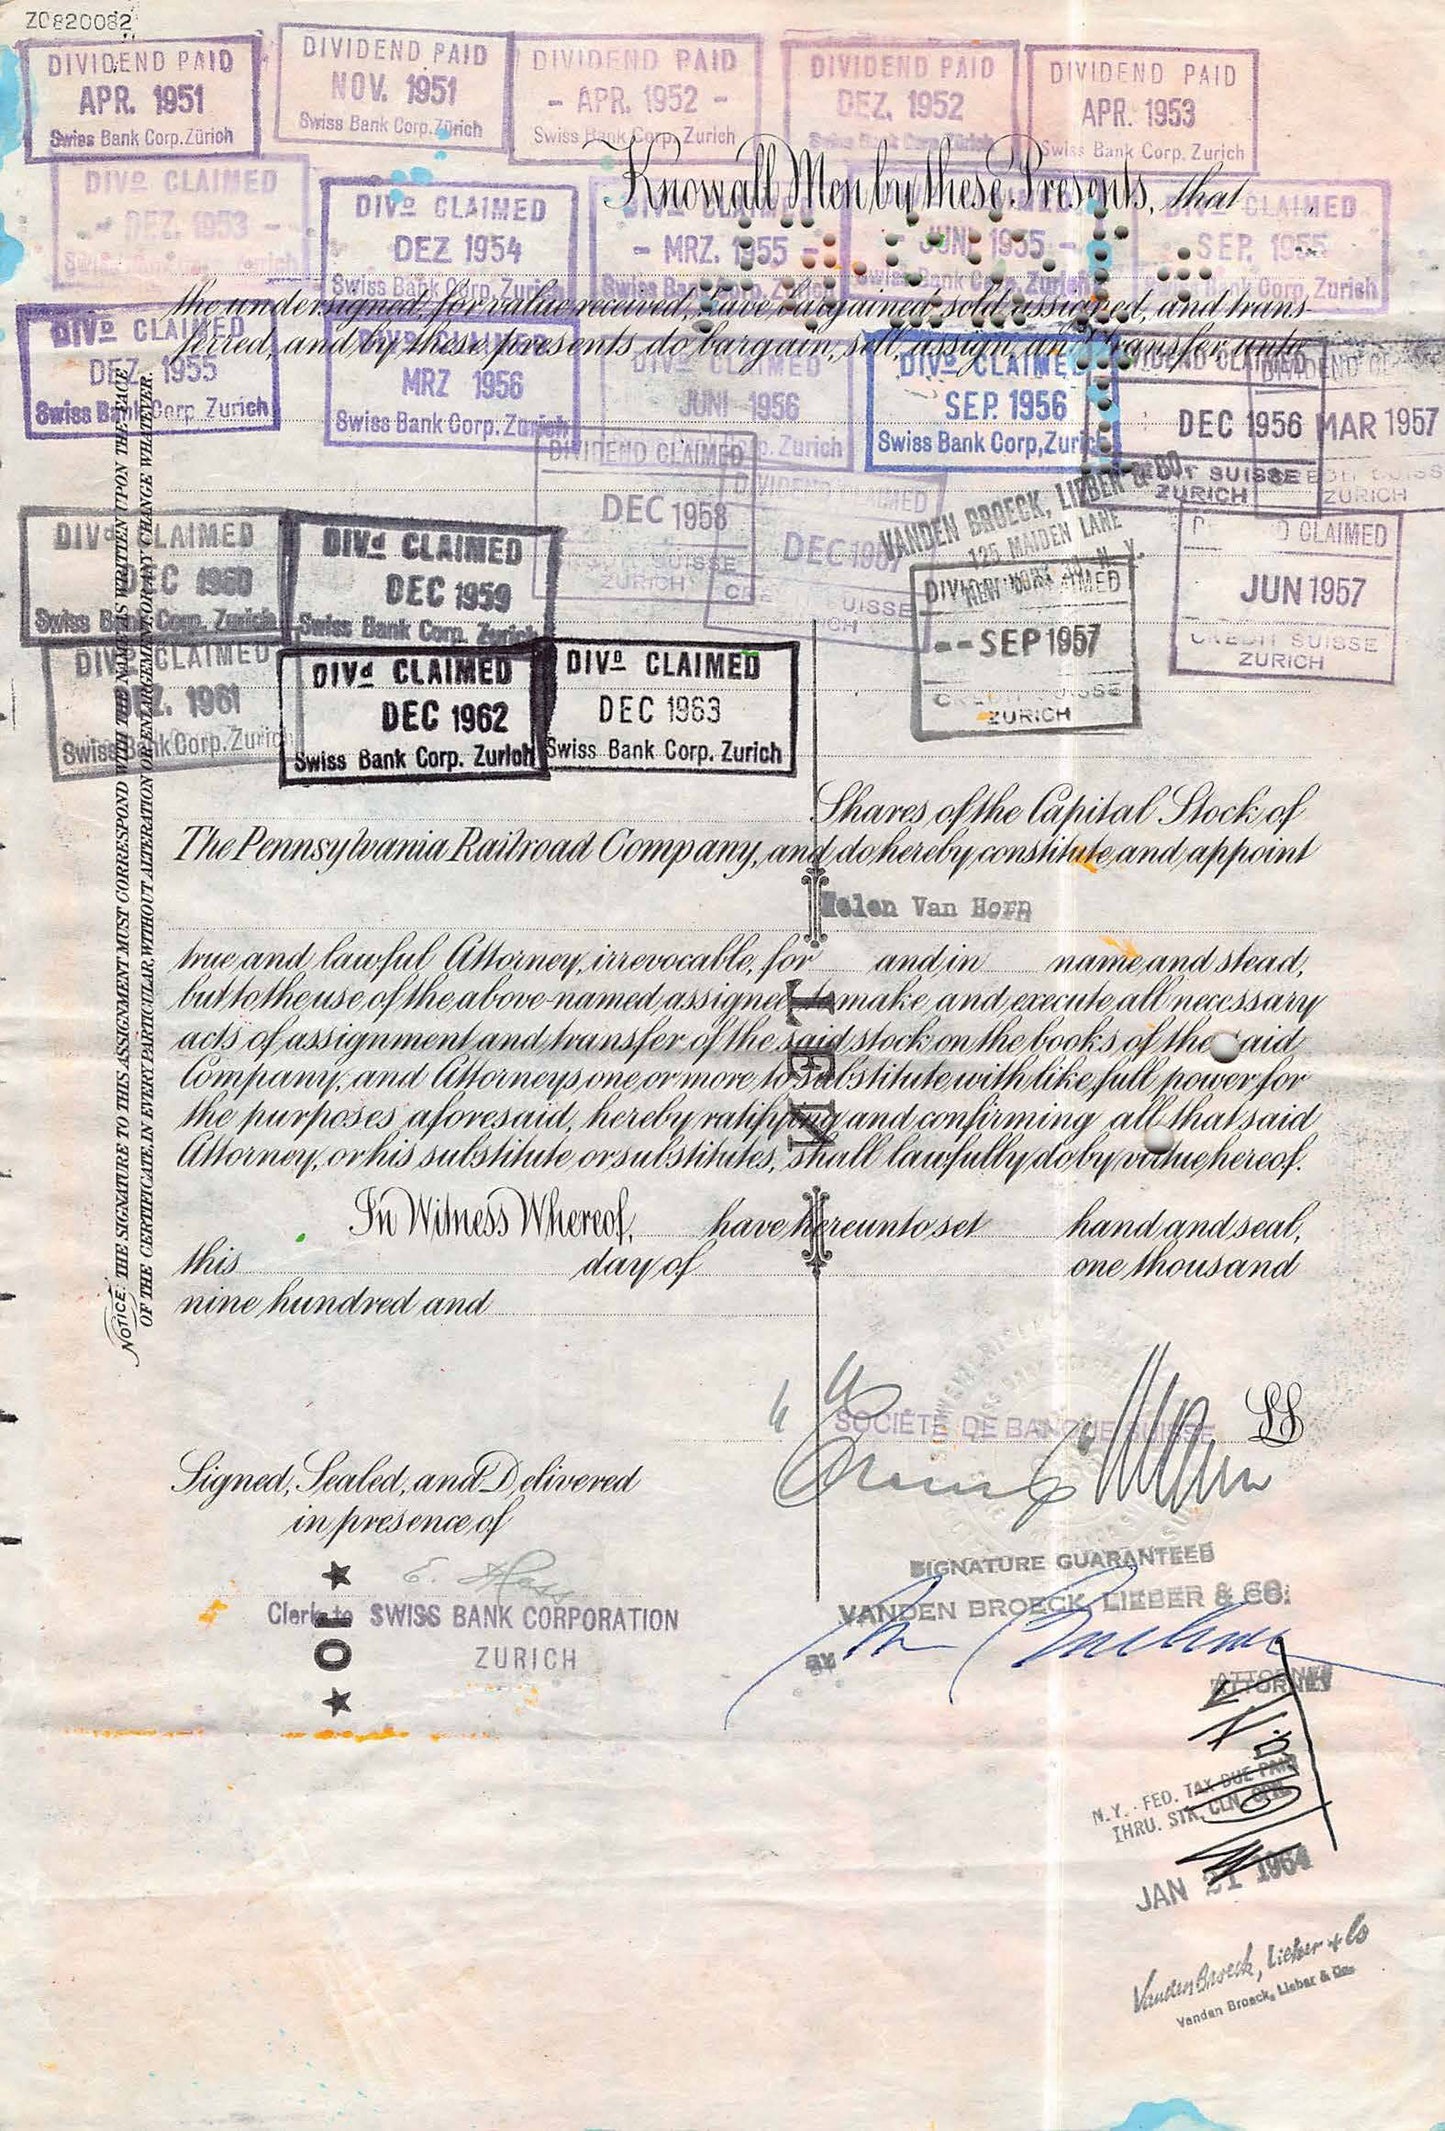 Z0820082
DIVIDEND PAID
APR. 1951
Swiss Bank Corp. Zürich
DIVIDEND PAID
NOV. 1951
Swiss Bank Corp. Zürich
DIVIDEND PAID
- APR. 1952 -
Swiss Bank Corp. Zurich
DIVIDEND PAID
DEZ. 1952
Swiss Bank Corp. Zürich
DIVIDEND PAID
APR. 1953
Swiss Bank Corp. Zurich
Know all Men by these Presents, that
DIVD CLAIMED
- DEZ. 1953 -
Swiss Bank
DIVD CLAIMED
DEZ 1954
Swiss Bank Corp. Zurich
DIVD CLAIMED
- MRZ. 1955 -
- JUNI 1955 -
Swiss Bank Corp. Zurich
DIVD CLAIMED
SEP. 1955
Bank Corp. Zurich
the undersigned, for value received, have bargained, sold, assigned, and trans-
ferred, and by these presents do bargain, sell, assign, and transfer unto
DIVD CLAIMED
DEZ. 1955
Swiss Bank Corp. Zurich
MRZ 1956
Swiss Bank Corp. Zurich
DIVD CLAIMED
JUNI 1956
Corp. Zurich
DIVD CLAIMED
SEP. 1956
Swiss Bank Corp, Zurich
DIVIDEND CLAIMED
DEC 1956
CREDIT SUISSE
ZURICH
DIVIDEND CLAIMED
MAR 1957
CREDIT SUISSE
ZURICH
DIVIDEND CLAIMED
DEC 1958
CREDIT SUISSE
ZURICH
DIVIDEND CLAIMED
DEC 1957
CREDIT SUISSE
ZURICH
VANDEN BROECK, LIEBER & CO.
125 MAIDEN LANE
NEW YORK N. Y.
DIVIDEND CLAIMED
-- SEP 1957
CREDIT SUISSE
ZURICH
DIVIDEND CLAIMED
JUN 1957
CREDIT SUISSE
ZURICH
DIVd CLAIMED
DEC 1960
Swiss Bank Corp. Zurich
DIVd CLAIMED
DEC 1959
Swiss Bank Corp. Zurich
DIVD CLAIMED
DEZ. 1961
Swiss Bank Corp. Zurich
DIVd CLAIMED
DEC 1962
Swiss Bank Corp. Zurich
DIVD CLAIMED
DEC 1963
Swiss Bank Corp. Zurich
Shares of the Capital Stock of
The Pennsylvania Railroad Company, and do hereby constitute and appoint
Helen Van Horn
true and lawful Attorney, irrevocable, for and in name and stead,
but to the use of the above-named assignee to make and execute all necessary
acts of assignment and transfer of the said stock on the books of the said
Company, and Attorneys one or more to substitute with like full power for
the purposes aforesaid, hereby ratifying and confirming all that said
Attorney, or his substitute or substitutes, shall lawfully do by virtue hereof.
TEN
In Witness Whereof, have hereunto set hand and seal,
this day of one thousand
nine hundred and
NOTICE: THE SIGNATURE TO THIS ASSIGNMENT MUST CORRESPOND WITH THE NAME AS WRITTEN UPON THE FACE
OF THE CERTIFICATE, IN EVERY PARTICULAR, WITHOUT ALTERATION OR ENLARGEMENT, OR ANY CHANGE WHATEVER.
SOCIÉTÉ DE BANQUE SUISSE
LS
Signed, Sealed, and Delivered
in presence of
Clerk to SWISS BANK CORPORATION
ZURICH
★ 10 ★
SIGNATURE GUARANTEED
VANDEN BROECK, LIEBER & CO.
BY
ATTORNEY
N.Y. - FED. TAX DUE PAID
THRU. STK. CLR. COR.
JAN 21 1964
Vanden Broeck, Lieber & Co
Vanden Broeck, Lieber & Co.